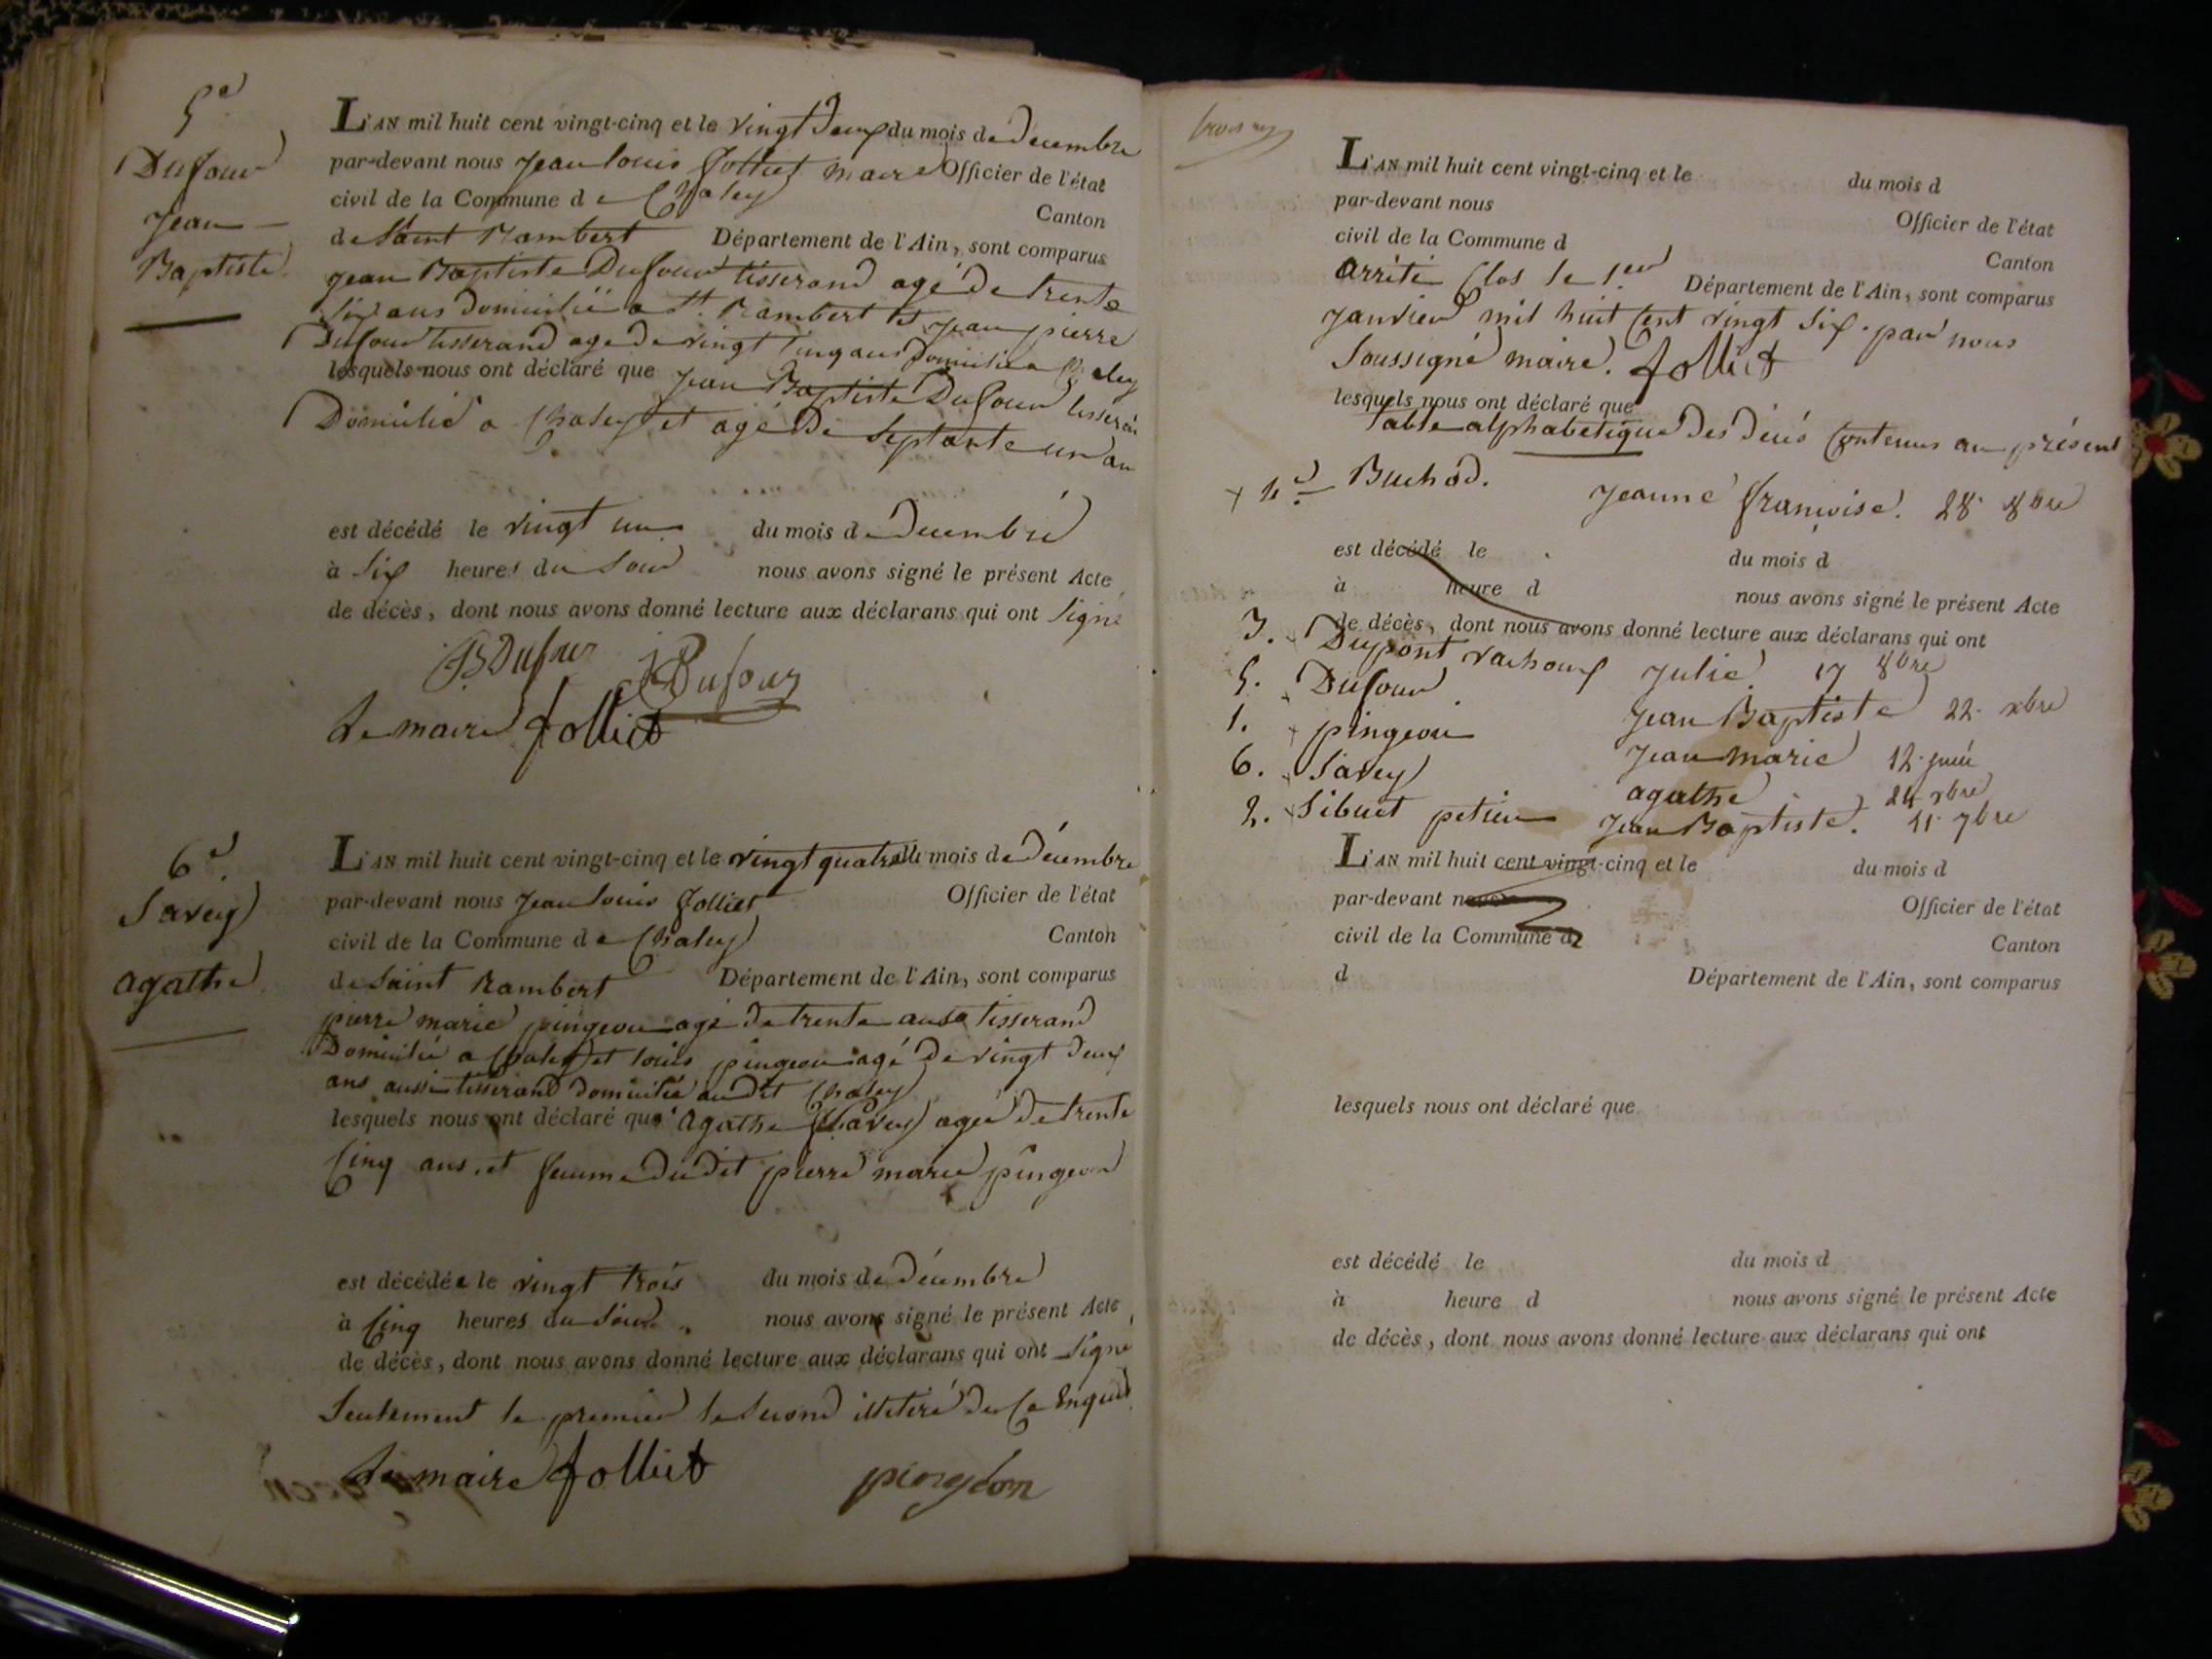 5e
Dufour
Jean
Baptiste
L'AN mil huit cent vingt-cinq et le vingt deux du mois de Decembre
par-devant nous Jean Louis Jolliet maire Officier de l'état
civil de la Commune de Chaley Canton
de Saint Rambert Département de l'Ain, sont comparus
Jean Baptiste Dufour tisserand agé de trente
six ans domicilié a St. Rambert et Jean pierre
Dufour tisserand age de vingt cinq ans domicilié a Chaley
lesquels nous ont déclaré que Jean Baptiste Dufour tisseran
Domicilié a Chaley et agé de septante un an
est décédé le vingt un du mois de Decembre
à six heures du soir nous avons signé le présent Acte
de décès, dont nous avons donné lecture aux déclarans qui ont signé
JB Dufour JP Dufour
Le maire Jolliet
6e
Savey
agathe
L'AN mil huit cent vingt-cinq et le vingt quatre du mois de Décembre
par-devant nous Jean Louis Jolliet Officier de l'état
civil de la Commune de Chaley Canton
de Saint Rambert Département de l'Ain, sont comparus
pierre marie pingeon agé de trente ans tisserand
Domicilié a Chaley et louis pingeon agé de vingt deux
ans aussi tisserand domicilié audit Chaley
lesquels nous ont déclaré que agathe Savey agée de trente
cinq ans et femme dudit pierre marie pingeon
est décédée le vingt trois du mois de Décembre
à cinq heures du soir nous avons signé le présent Acte
de décès, dont nous avons donné lecture aux déclarans qui ont signé
seulement le premier le second illiteré de ce Enquis
Le maire Jolliet pingeon
L'AN mil huit cent vingt-cinq et le du mois d
par-devant nous Officier de l'état
civil de la Commune d Canton
arrêté Clos le 1er Département de l'Ain, sont comparus
janvier mil huit cent vingt six par nous
soussigné maire. Jolliet
lesquels nous ont déclaré que
Table alphabetique des décès contenus au présent
4e Buchod. Jeanne françoise. 28 8bre
est décédé le du mois d
à heure d nous avons signé le présent Acte
de décès, dont nous avons donné lecture aux déclarans qui ont
3. Dupont Julie 17 8bre
5. Dufour Jean Baptiste 22 xbre
1. pingeon Jean marie 12
6. Savey agathe 24 xbre
2. Sibuet petieu Jean Baptiste. 11 7bre
L'AN mil huit cent vingt-cinq et le du mois d
par-devant nous Officier de l'état
civil de la Commune d Canton
d Département de l'Ain, sont comparus
lesquels nous ont déclaré que
est décédé le du mois d
à heure d nous avons signé le présent Acte
de décès, dont nous avons donné lecture aux déclarans qui ont